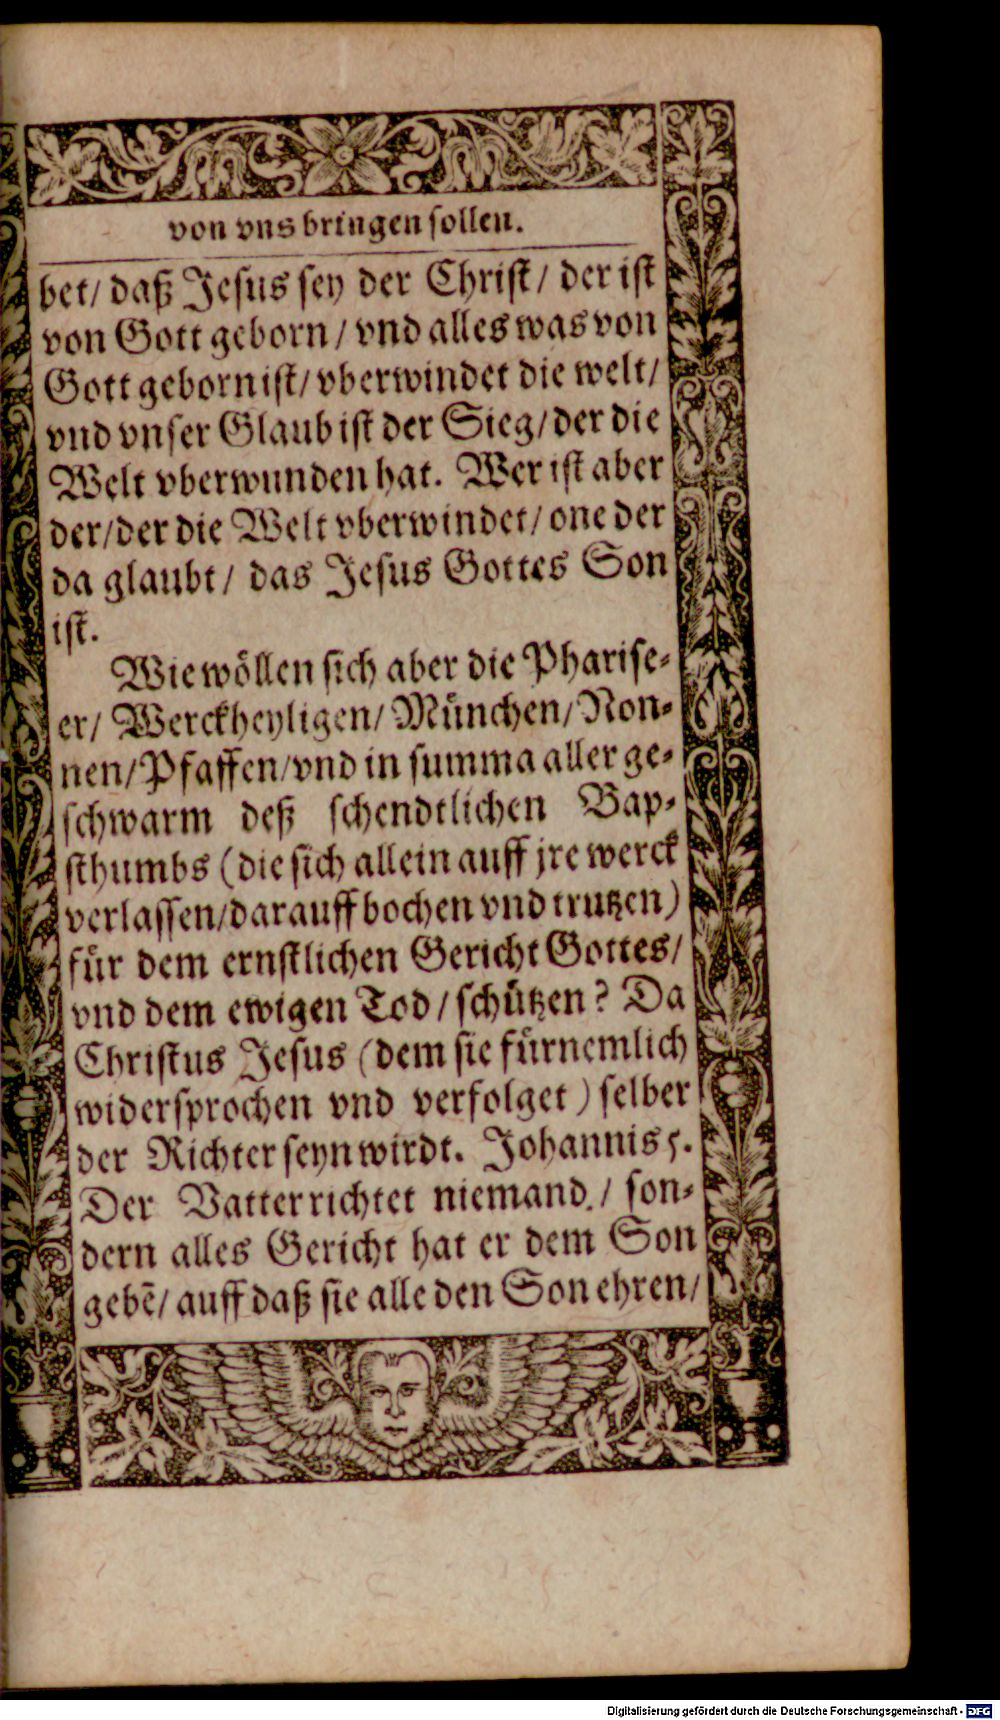 von vns bringen sollen.
bet/ daß Jesus sey der Christ/ der ist
von Gott geborn/ vnd alles was von
Gott geborn ist/ vberwindet die welt/
vnd vnser Glaub ist der Sieg/ der die
Welt vberwunden hat. Wer ist aber
der/ der die Welt vberwindet/ one der
da glaubt/ das Jesus Gottes Son
ist.
Wie wöllen sich aber die Pharise-
er/ Werckheyligen/ München/ Non-
nen/ Pfaffen/ vnd in summa aller ge-
schwarm deß schendtlichen Bap-
sthumbs (die sich allein auff jre werck
verlassen/ darauff bochen vnd trutzen)
für dem ernstlichen Gericht Gottes/
vnd dem ewigen Tod/ schützen? Da
Christus Jesus (dem sie fürnemlich
widersprochen vnd verfolget) selber
der Richter seyn wirdt. Johannis 5.
Der Vatter richtet niemand./ son-
dern alles Gericht hat er dem Son
gebē/ auff daß sie alle den Son ehren/
Digitalisierung gefördert durch die Deutsche Forschungsgemeinschaft - DFG